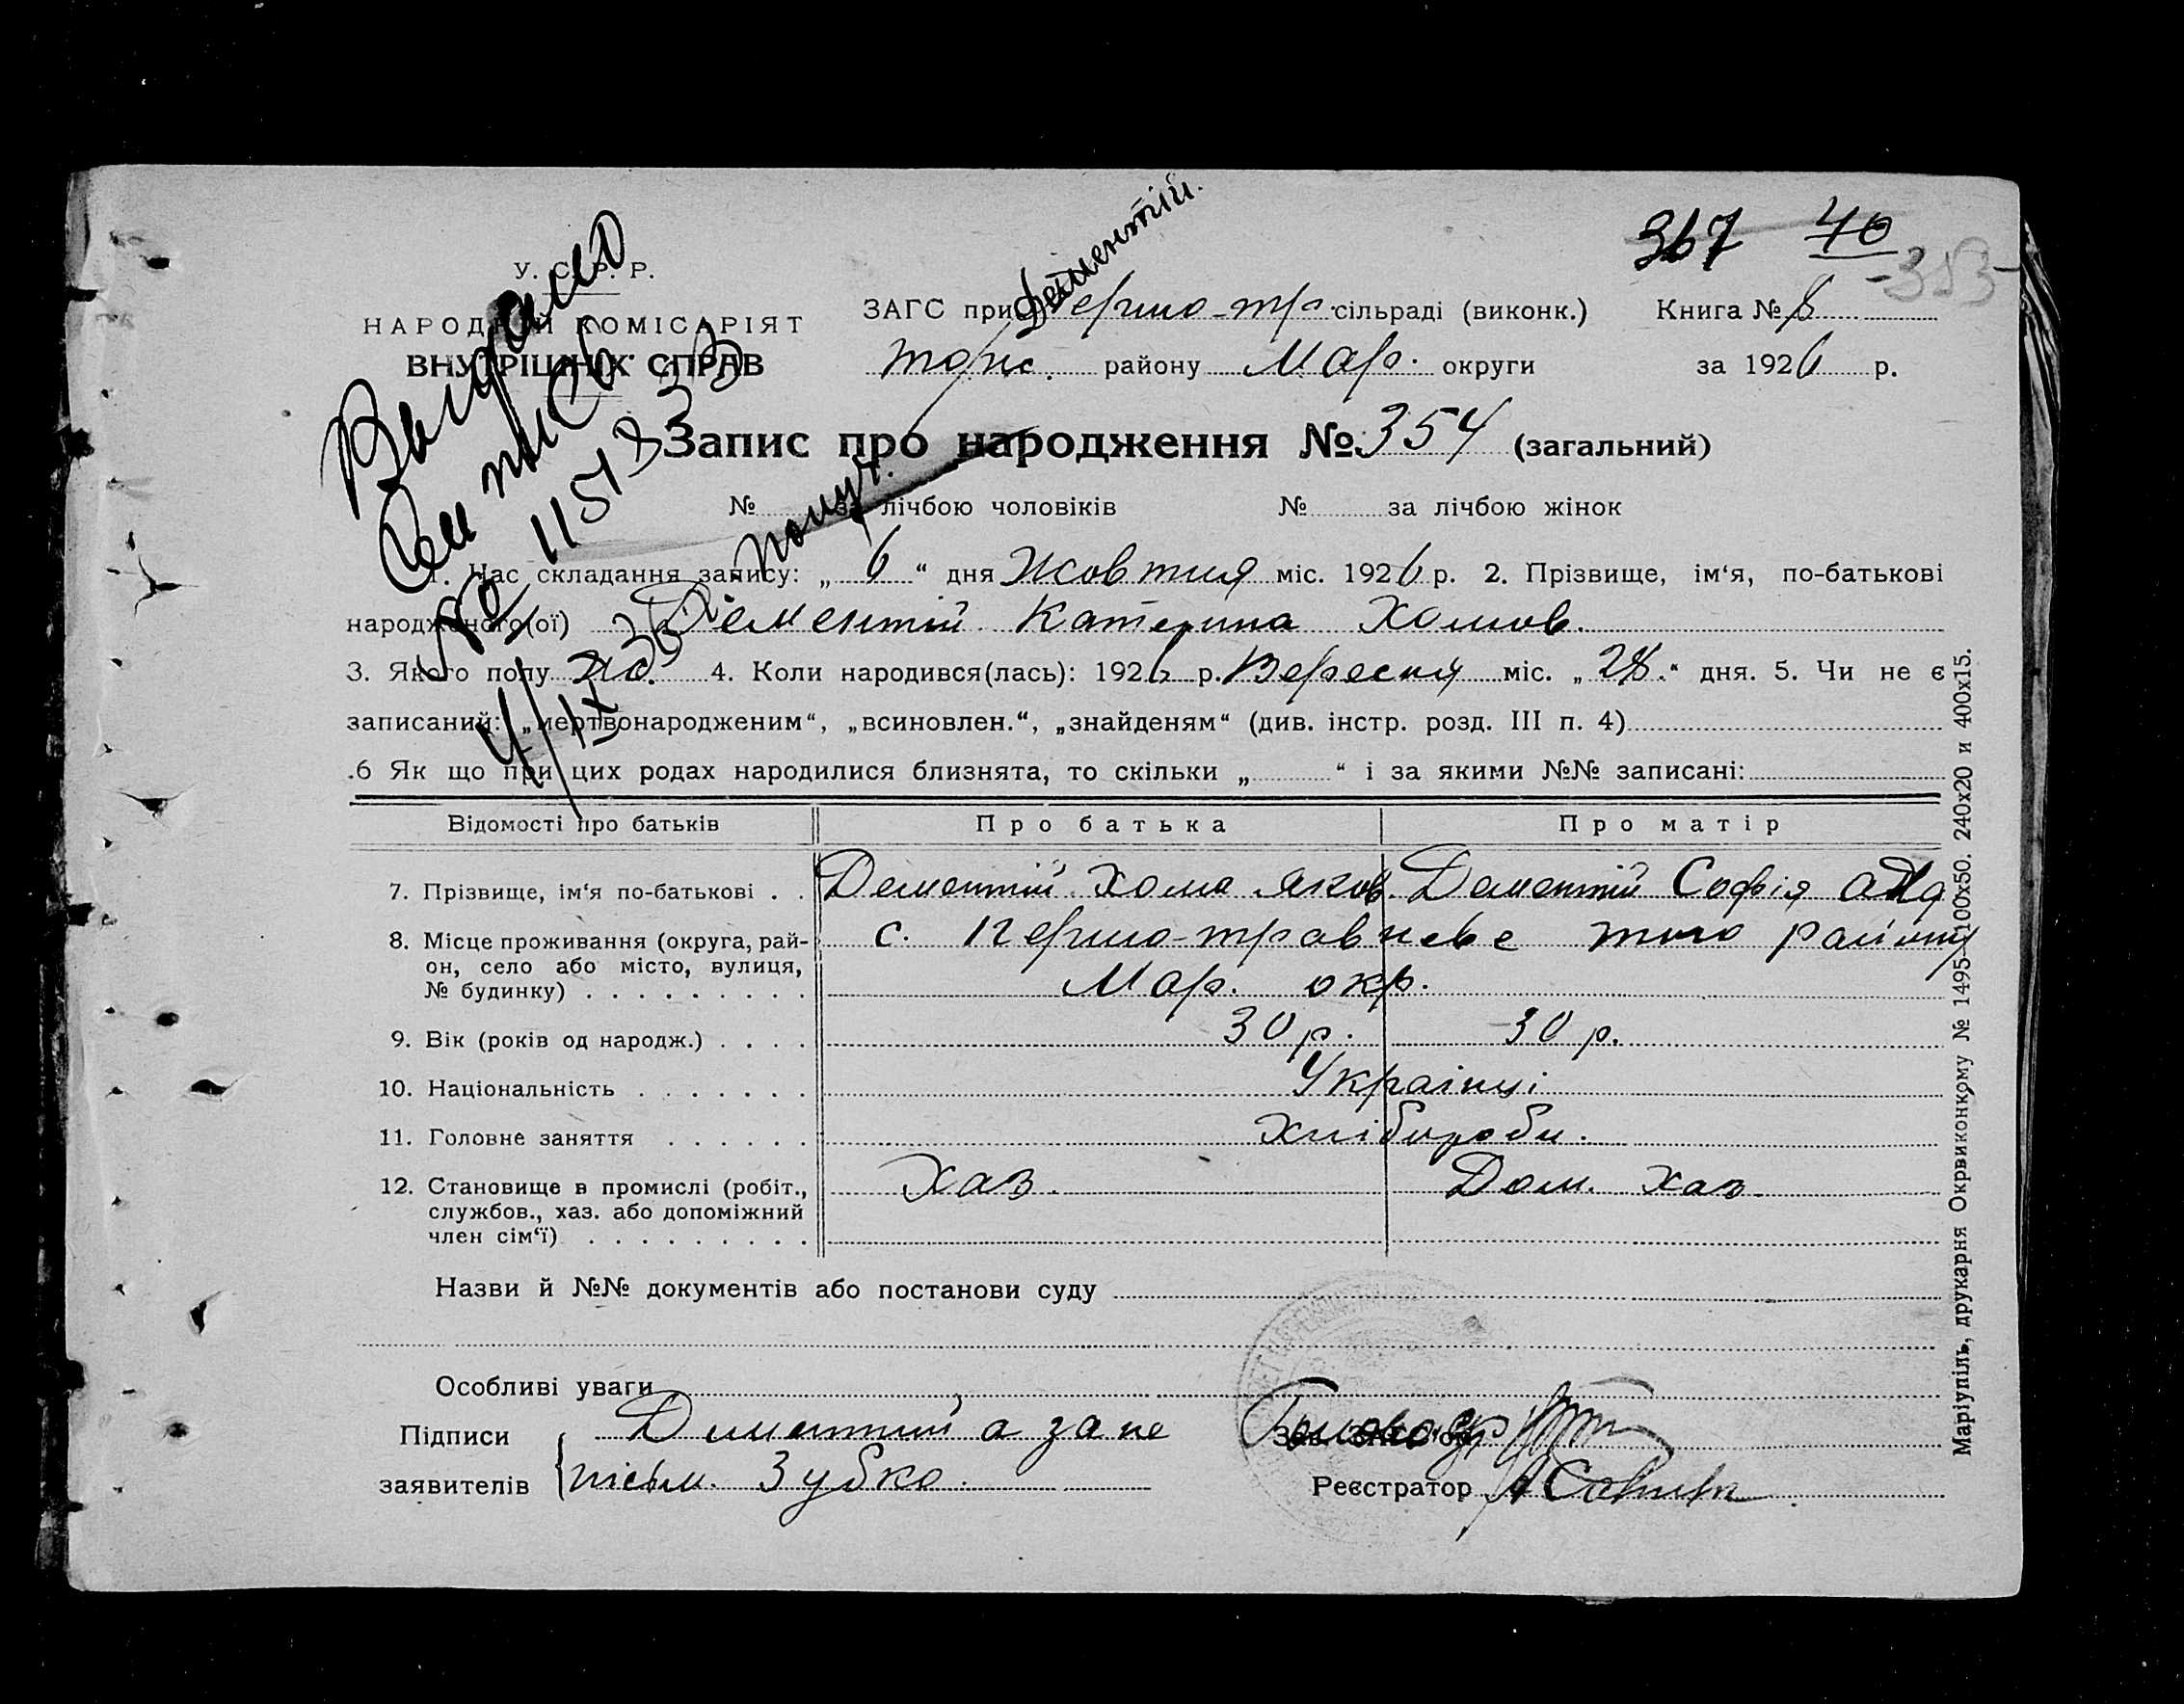 367 40
-353-
Дементий.
У. С. Р. Р.
НАРОДНІЙ КОМІСАРІЯТ
ВНУТРІШНІХ СПРАВ
ЗАГС при Першо-тр. сільраді (виконк.) Книга № 8
району Мар. округи за 1926 р.
Выдано
№ 115133
Запис про народження № 354 (загальний)
№ за лічбою чоловіків № за лічбою жінок
1. Час складання запису: „ 6 “ дня Жовтня міс. 1926 р. 2. Прізвище, ім‘я, по-батькові
народженого(ої) Дементій Катерина Хомов.
3. Якого полу жіо. 4. Коли народився(лась): 1926 р. Вересня міс. „ 28. “ дня. 5. Чи не є
записаний: „мертвонародженим“, „всиновлен.“, „знайденям“ (див. інстр. розд. III п. 4)
.6 Як що при цих родах народилися близнята, то скільки „ “ і за якими №№ записані:
Відомості про батьків Про батька Про матір
7. Прізвище, ім‘я по-батькові . . Дементій Хома Яков. Дементій Софія
8. Місце проживання (округа, рай- с. Першо-травневе того району
он, село або місто, вулиця, Мар. окр.
№ будинку) . . . . . . . . .
9. Вік (років од народж.) . . . . 30 р. 30 р.
10. Національність . . . . . . . Українці
11. Головне заняття . . . . . . Хлібороби.
12. Становище в промислі (робіт., Хаз. Дом. хаз.
службов., хаз. або допоміжний
член сім‘ї) . . . . . . . . .
Назви й №№ документів або постанови суду
Особливі уваги
Підписи Диментий а за не
заявителів письм. Зубко.
Реєстратор
Маріупіль, друкарня Окрвиконкому № 1495—100х50. 240х20 и 400х15.